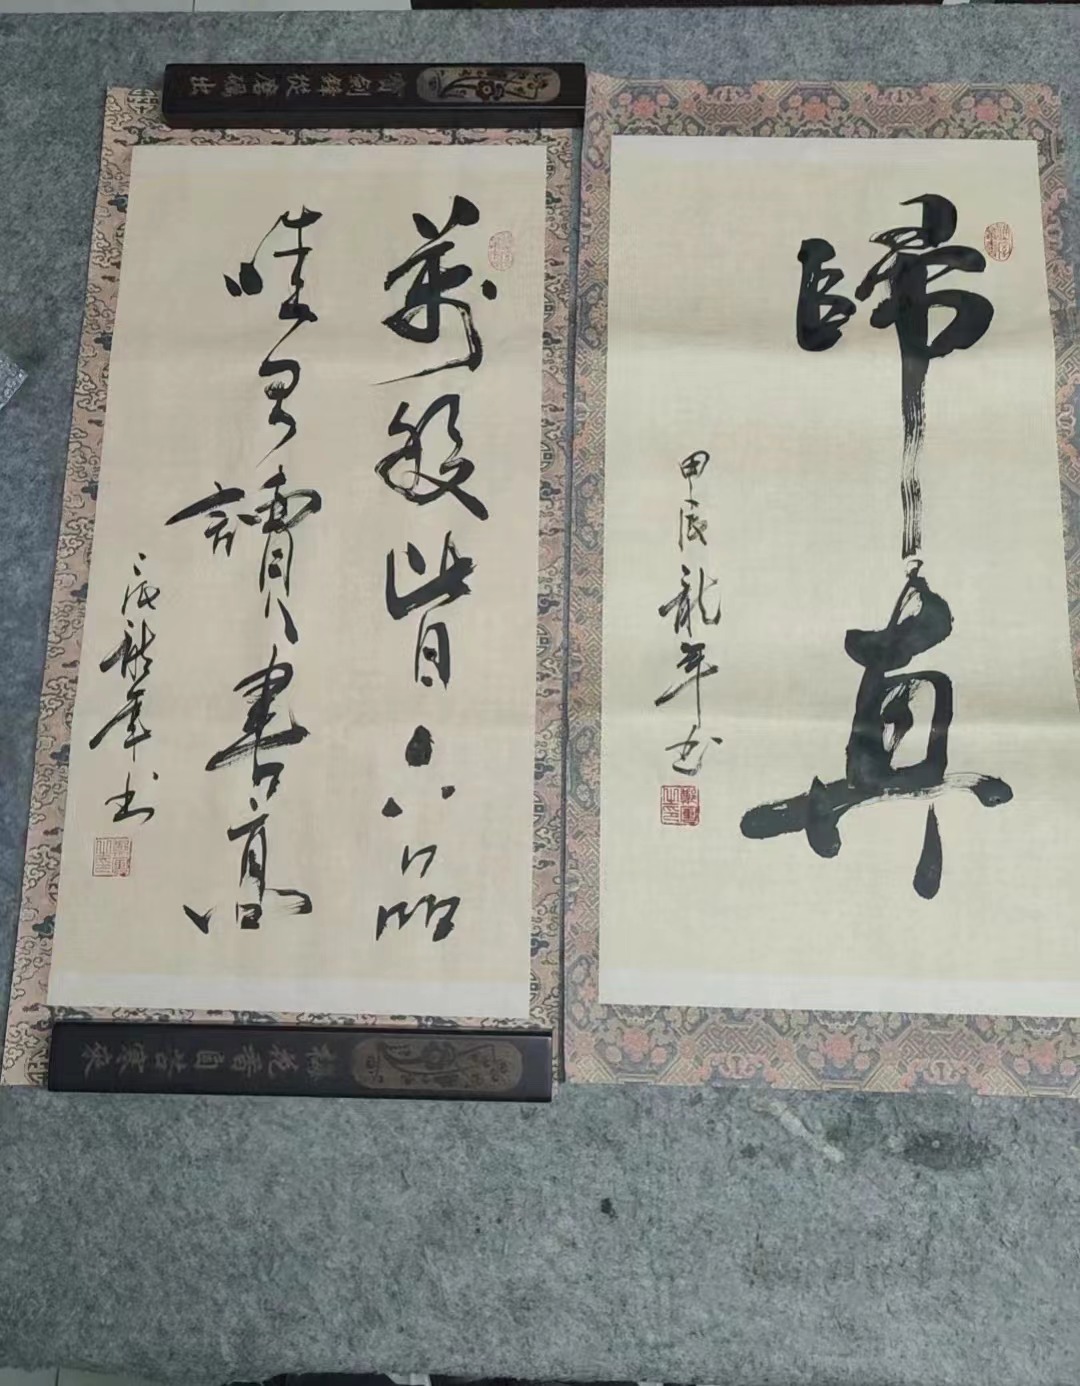 歸真
甲辰龍年书
萬般皆下品
唯有讀書高
辰龍年书
寶劍鋒從磨礪出
梅花香自苦寒來